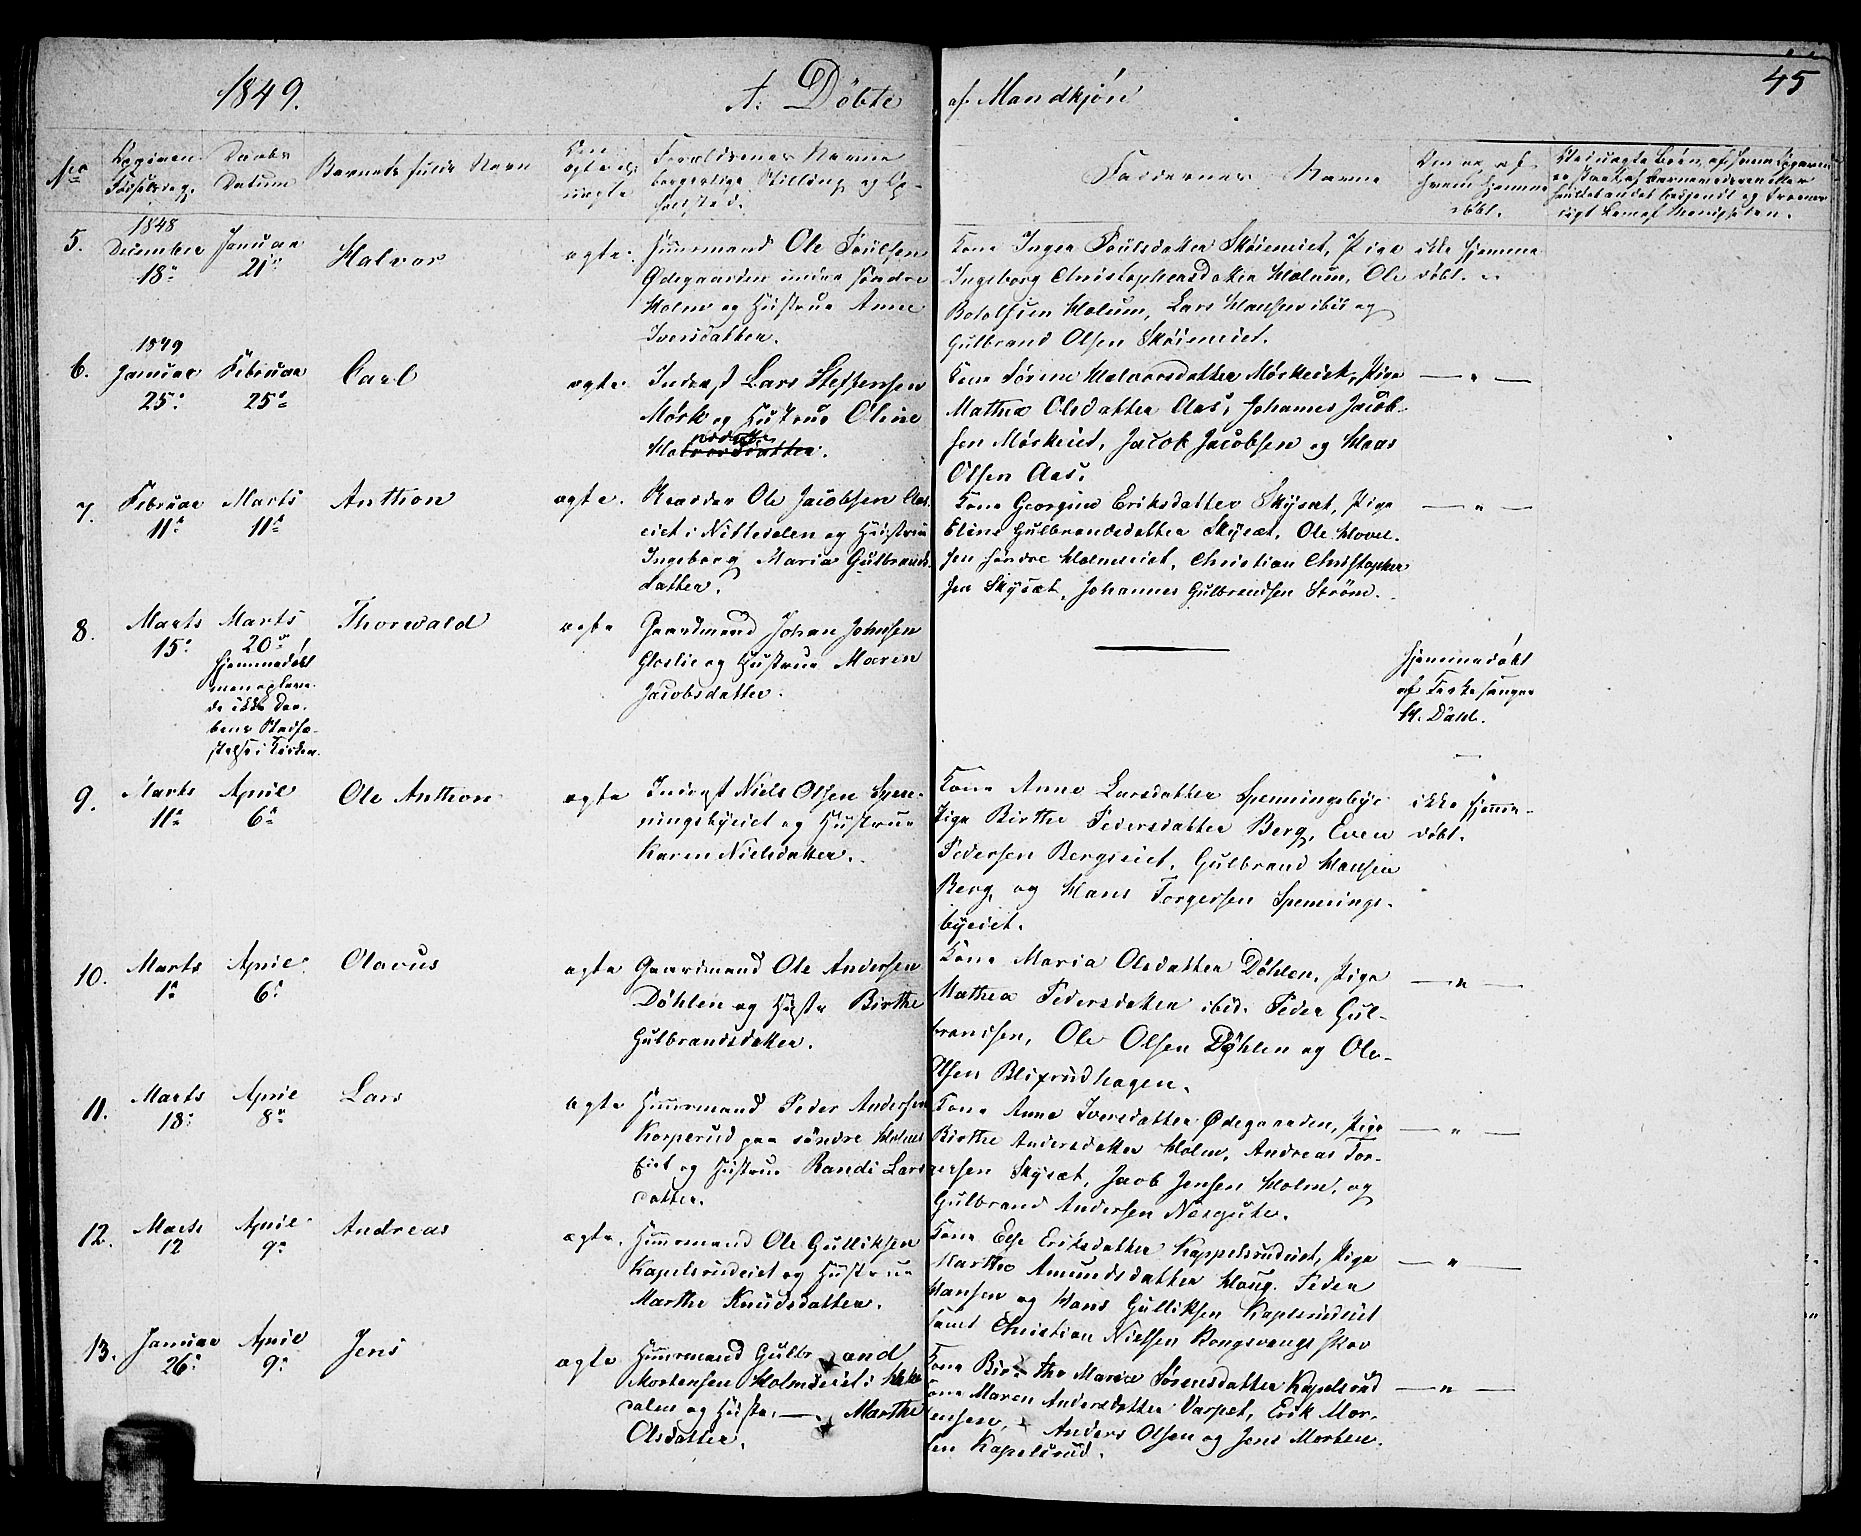 1849.
A. Døbte
af Mandkjøn
45
No
Datum
Barnets fulde Navn
Forældrenes Navne
Faddernes Navne
5.
1848
December
18de
Januar
21de
Halvor
ægte.
Huusmand Ole Poulsen
Ødegaarden under søndre
Holm og Hustrue Anne
Iversdatter.
Kone Inger Poulsdatter Skøieneiet, Pige
Ingeborg Christophersdatter Holum, Ole
Botolfsen Holum, Lars Hansen ibid og
Gulbrand Olsen Skøieneiet.
ikke hjemme
døbt.
6.
1849
Januar
25de
Februar
25de
Carl
ægte.
Inderst Lars Steffensen
Mørk og Hustrue Oline
Halvorsdatter.
Kone Sørine Halvorsdatter Mørkeiet, Pige
Mathea Olsdatter Aas, Johannes Jacob-
sen Mørkeiet, Jacob Jacobsen og Claas
Olsen Aas.
— " —
7.
Februar
11te
Marts
11te
Anthon
ægte.
Ole Jacobsen Aas
eiet i Nittedalen og Hustrue
Ingeborg Maria Gulbrands
datter.
Kone Georgine Eriksdatter Skyset, Pige
Eline Gulbrandsdatter Skyset, Ole Hovel-
sen søndre Holmeiet, Christian Christopher
sen Skyset, Johannes Gulbrandsen Strøm.
— " —
8.
Marts
15de
Marts
20de
hjemmedøbt
men opleve-
de ikke Daa-
bens Stadfæ-
stelse i Kirken.
Thorvald
ægte
Gaardmand Johan Johnsen
Gloslie og Hustrue Maren
Jacobsdatter.
———
hjemmedøbt
af Kirkesanger
H. Dahl.
9.
Marts
11te
April
6te
Ole Anthon
ægte
Inderst Niels Olsen Spen-
ningsbyeiet og Hustrue
Karen Nielsdatter.
Kone Anne Larsdatter Spenningsbye
Pige Birthe Pedersdatter Berg, Even
Pedersen Bergseiet, Gulbrand Hansen
Berg, og Hans Torgersen Spennings-
byeiet.
ikke hjemme-
døbt.
10.
Marts
1te
April
6te
Olavus
ægte
Gaardmand Ole Andersen
Døhlen og Hustr Birthe
Gulbrandsdatter.
Kone Maria Olsdatter Døhlen, Pige
Mathea Pedersdatter ibid. Peder Gul-
brandsen, Ole Olsen Døhlen og Ole
Olsen Blixrudhagen.
— " —
11.
Marts
18de
April
8de
Lars
ægte
Huusmand Peder Andersen
Korperud paa søndre Holms
Eiet og Hustrue Randi Lars
datter.
Kone Anne Iversdatter Ødegaarden, Pige
Birthe Andersdatter Holm, Andreas Tor-
gersen Skyset, Jacob Jensen Holm, og
Gulbrand Andersen Næsgute.
— " —
12.
Marts
12
April
9de
Andreas
ægte.
Huusmand Ole Gulliksen
Kapelsrudeiet og Hustrue
Marthe Knudsdatter.
Kone Else Eriksdatter Kappelsrudeiet, Pige
Marthe Amundsdatter Haug. Peder
Hansen og Hans Gulliksen Kaplsrudeiet
samt Christian Nielsen Kongsvangs Skov
— " —
13.
Januar
26de
April
9de
Jens
ægte
Huusmand Gulbrand
Mortensen Holmseiet i Hake
dalen og Hustr. — Marthe
Olsdatter.
Kone Birthe Maria Sørensdatter Kapelsrud
Kone Maren Andersdatter Varpet, Erik Mor-
tensen, Anders Olsen og Jens Morten-
sen Kapelsrud.
— " —